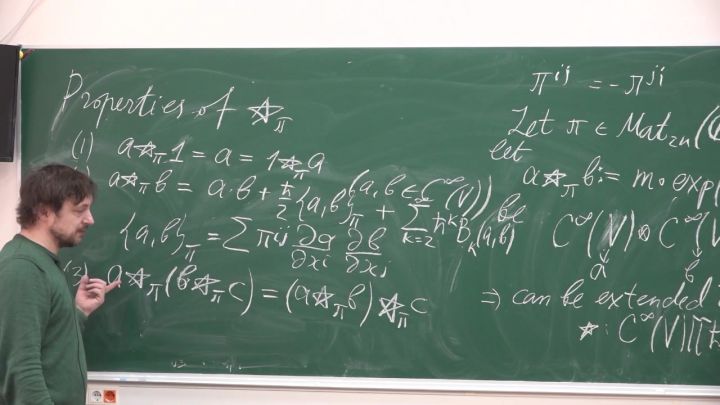 Properties of ☆_π
(1) a☆_π 1 = a = 1☆_π a
a☆_π b = a·b + ℏ/2 {a,b}_π + Σ_{k=2} ℏ^k B_k(a,b)
(a,b ∈ C^∞(V))
{a,b}_π = Σ π^{ij} ∂a/∂x_i ∂b/∂x_j
(3) a☆_π (b☆_π c) = (a☆_π b) ☆_π c
π^{ij} = -π^{ji}
Let π ∈ Mat_{2n}(
let
a☆_π b := m∘exp(
be
C^∞(V) ⊗ C^∞(V
a b
⇒ can be extended
☆: C^∞(V)[[ℏ